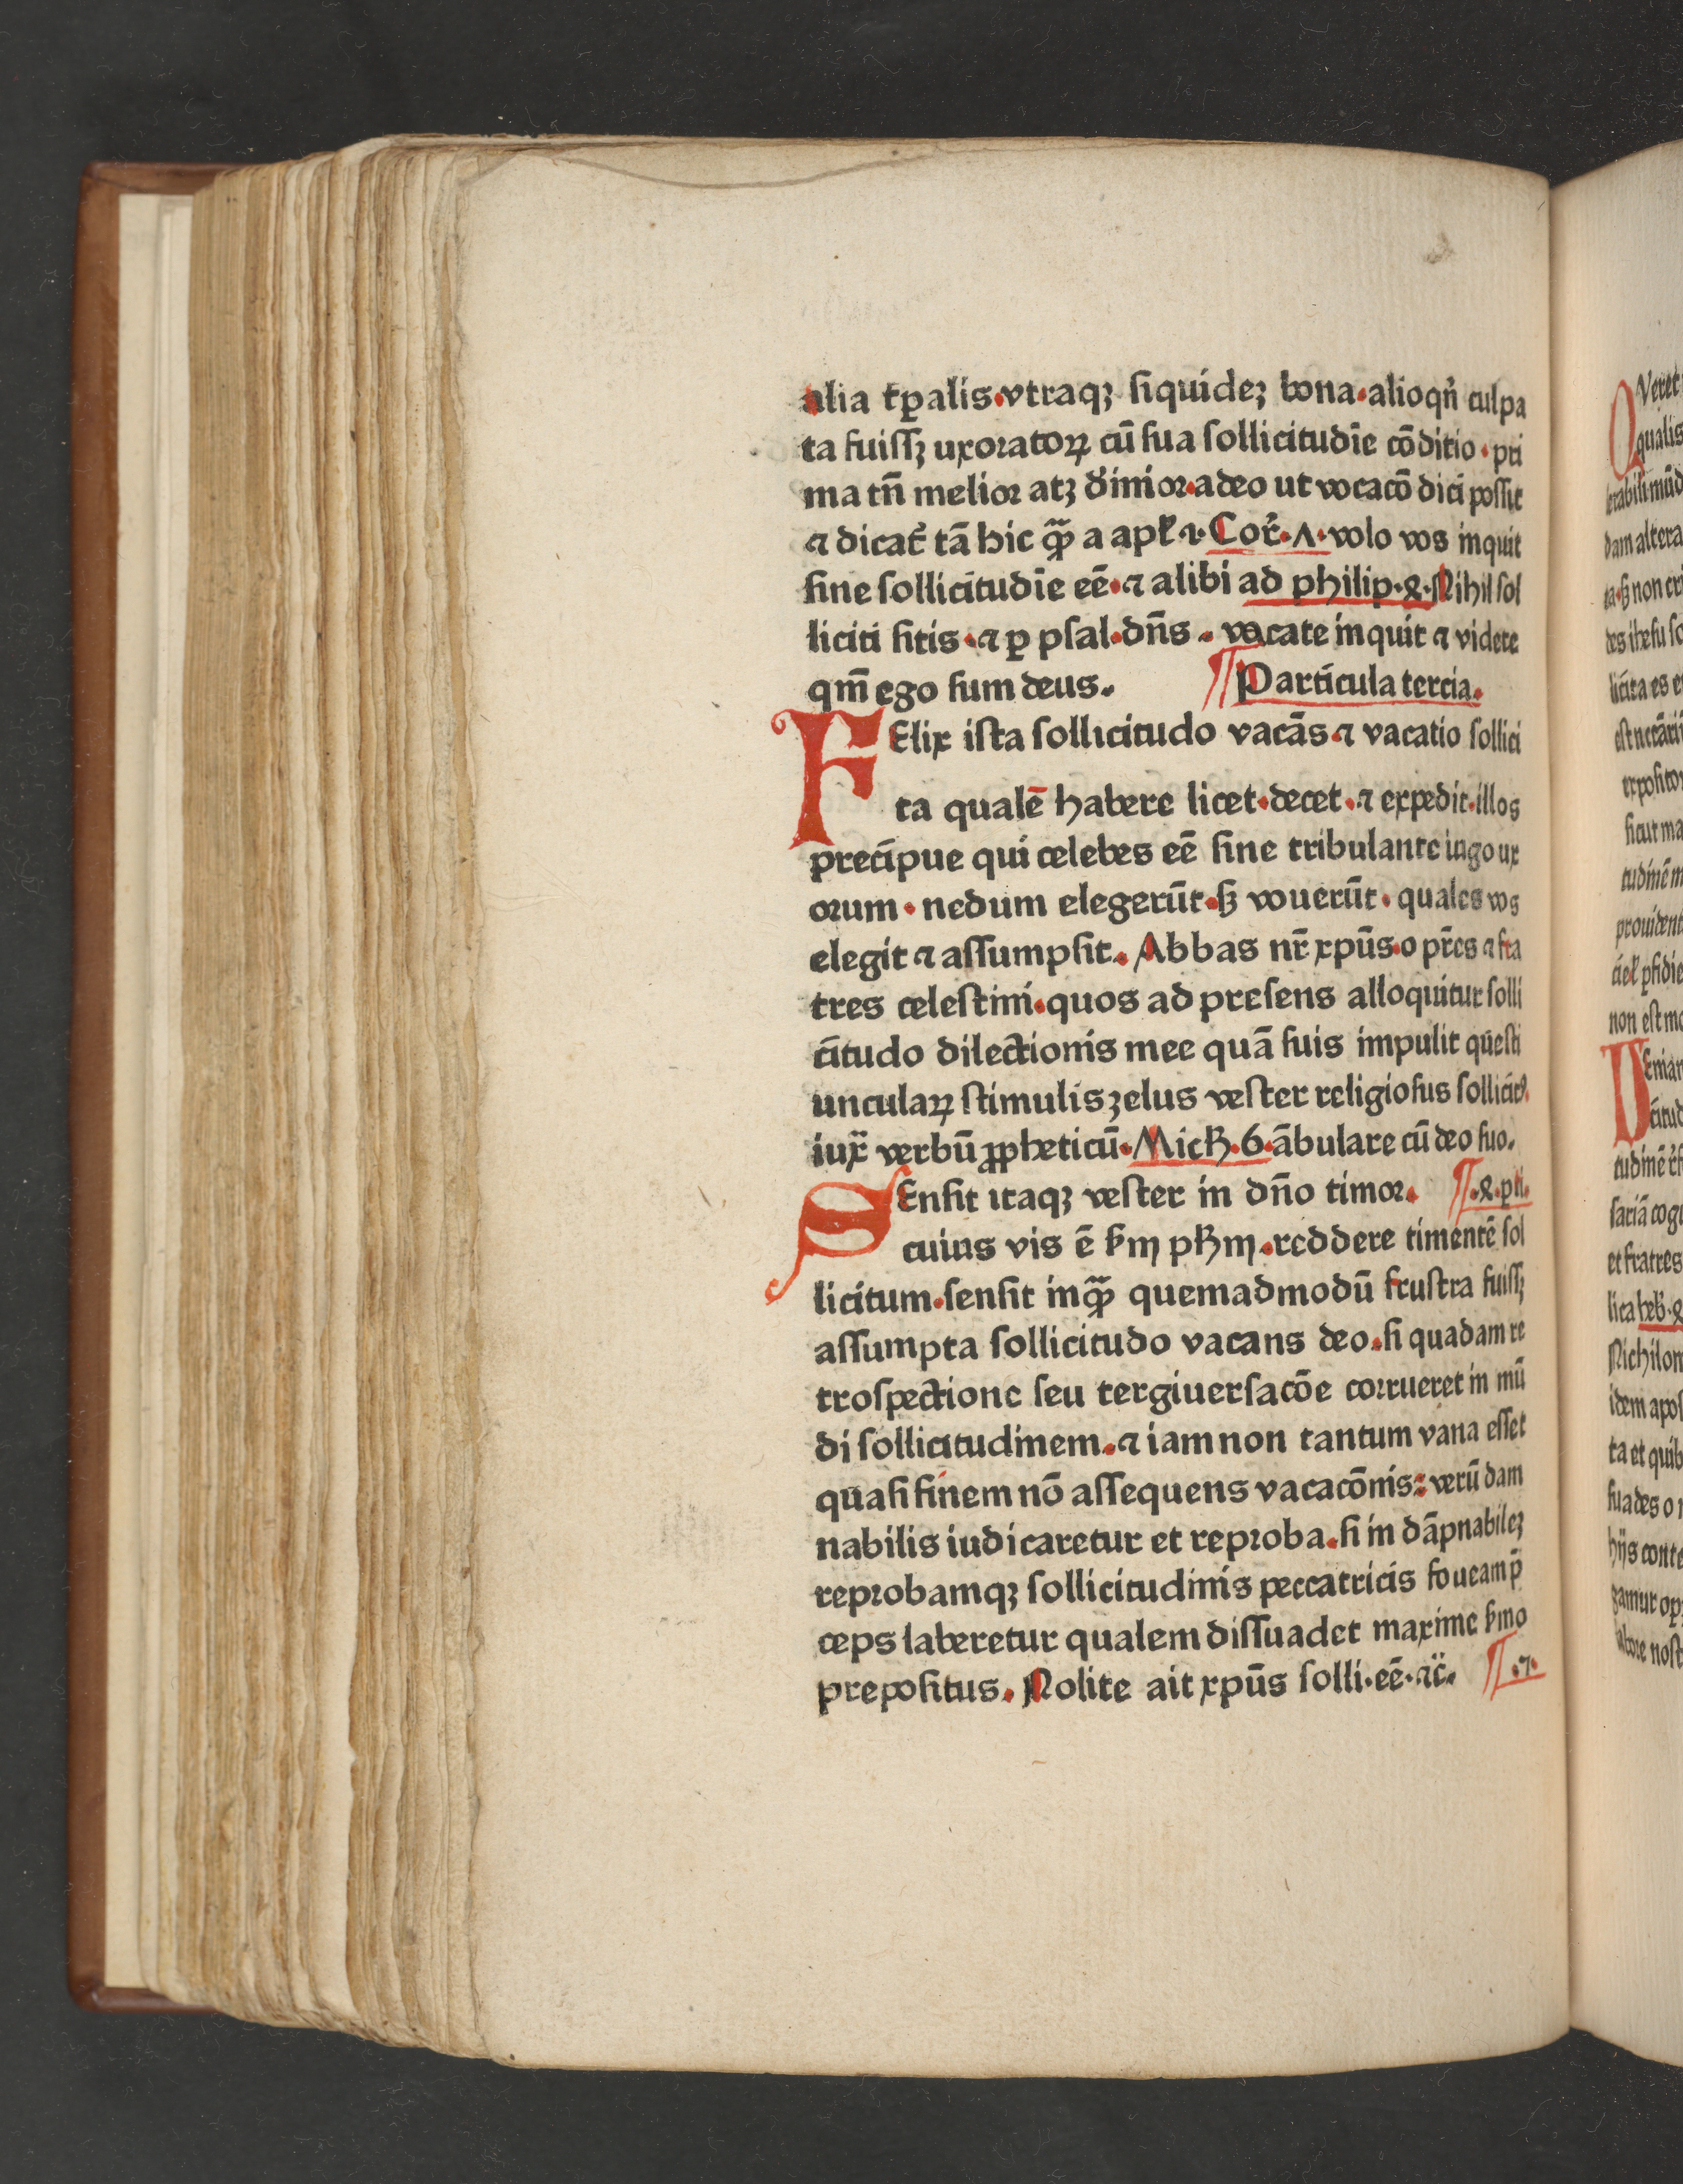 alia tꝑalis.vtraqꝫ siquideꝫ bona.alioqn̄ culpa
ta fuissꝫ uxoratoꝝ cū sua sollicitudīe cōditio.pri
ma tn̄ melior atꝫ d̓inior.adeo ut vocacō dici possit
⁊ dicat̄ tā hic qᷓꝫ a apł ⁊.Cor̄.ʌ.volo vos inquit
sine sollicitudīe eē.⁊ alibi ad philip.ꝝ.Nihil sol
liciti sitis.⁊ ꝑ psal.dn̄s . vacate inquit ⁊ videte
qm̄ ego sum deus. ¶Particula tercia.
FElix ista sollicitudo vacās ⁊ vacatio sollici
ta qualē habere licet.decet.⁊ expedit.illos
precipue qui celebes eē sine tribulante iugo ux
orum.nedum elegerūt.sꝫ vouerūt.quales vos
elegit ⁊ assumpsit.Abbas nr̄ xpūs.o pr̄es ⁊ fra
tres celestini.quos ad presens alloquitur solli
citudo dilectionis mee quā suis impulit questi
unculaꝝ stimulis zelus vester religiosus sollicitꝰ.
iux̄ verbū ꝓpheticū.Mich.6.ābulare cū deo suo.
SEnsit itaqꝫ vester in dn̄o timor. ¶.ꝝ.pti.
cuius vis ē ẜm pħm.reddere timentē sol
licitum.sensit inqᷓꝫ quemadmodū frustra fuissꝫ
assumpta sollicitudo vacans deo.si quadam re
trospectione seu tergiuersacōe corrueret in mū
di sollicitudinem.⁊ iam non tantum vana esset
quasi finem nō assequens vacacōnis: verū dam
nabilis iudicaretur et reproba.si in dāpnabileꝫ
reprobamqꝫ sollicitudinis peccatricis foueam p̄
ceps laberetur qualem dissuadet maxime ẜmo
prepositus.Nolite ait xpūs solli.eē.⁊c̄. ¶.7.